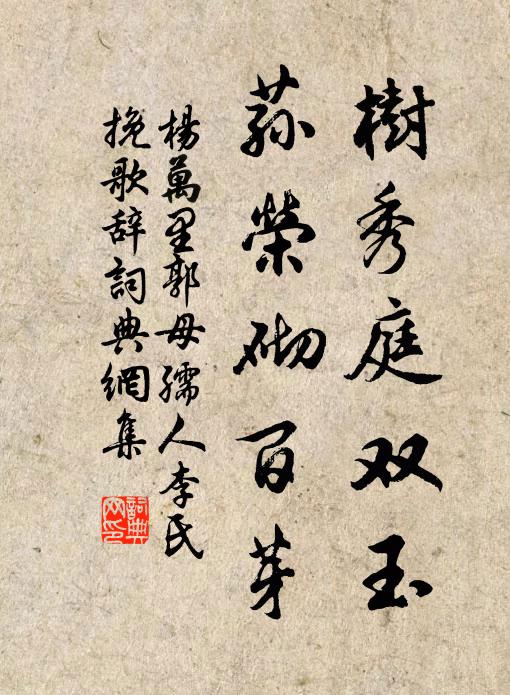 樹秀庭双玉
荪榮砌百芽
楊萬里郭母孺人李氏
挽歌辞詞典網集
詞典网印